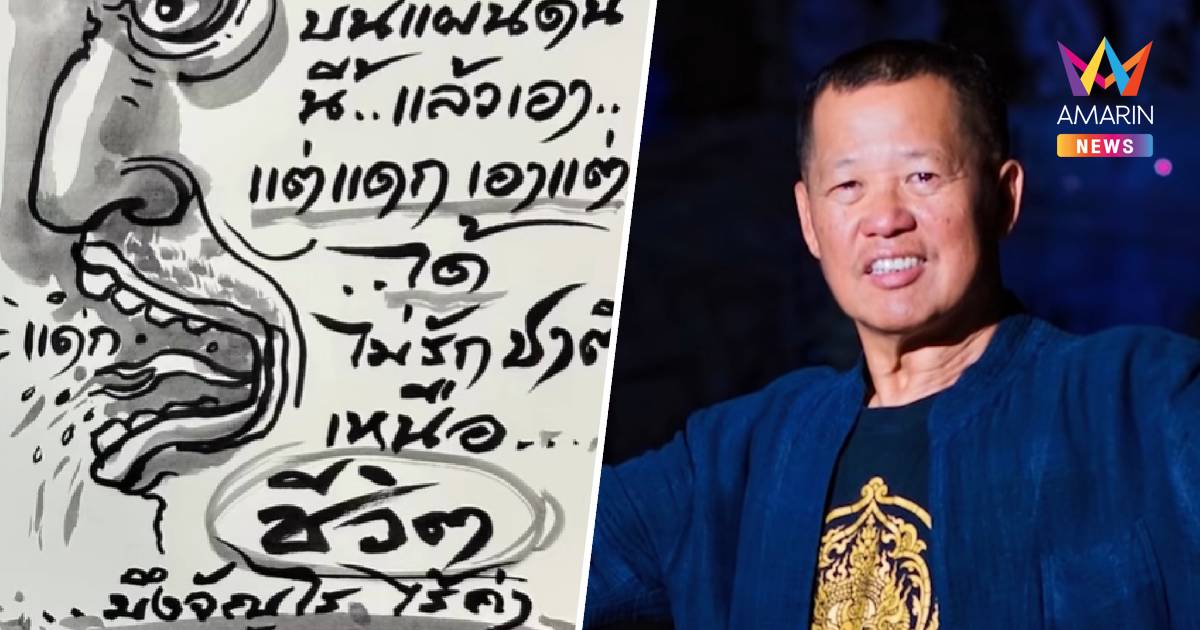 บนแผ่นดิน
นี้..แล้วเอา..
แต่แดก เอาแต่
..ได้
แดก
ไม่รัก ชาติ
เหนือ....
ชีวิต
...มึงจัญไร ไร้ค่า
AMARIN
NEWS